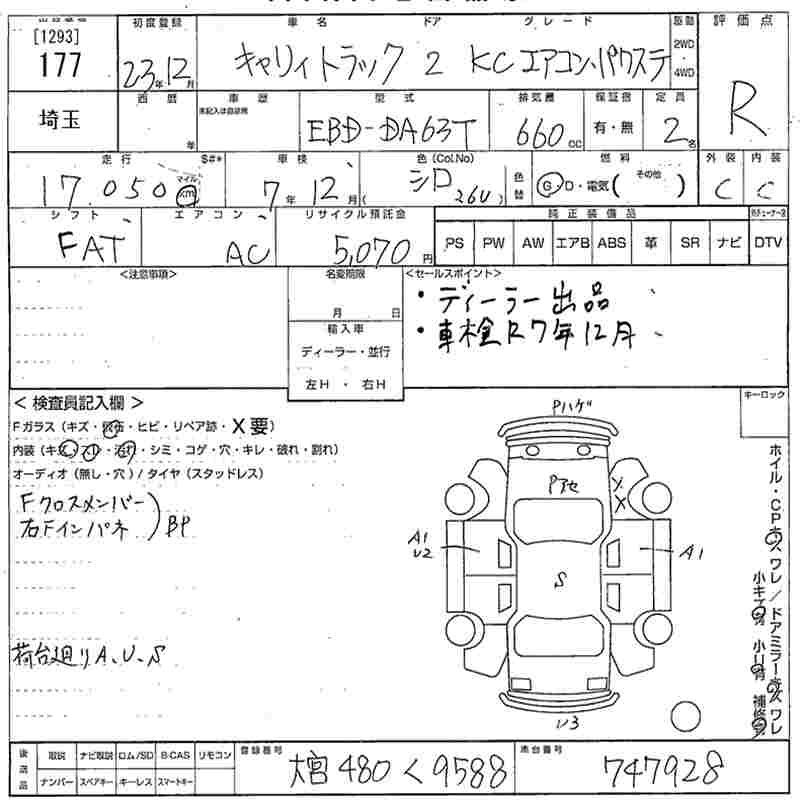 [1293]
177
埼玉
初度登録
23年12月
車名
キャリイトラック
ドア
2
グレード
KC エアコン、パワステ
駆動
2WD
4WD
評価点
R
西暦
年
車歴
未記入は自家用
型式
EBD-DA63T
排気量
660cc
保証書
有・無
定員
2名
走行
17.050
マイル
km
S#*
車検
7年12月(
色(Col.No)
シロ 26U)
色替
燃料
G・D・電気(その他 )
外装
C
内装
C
シフト
FAT
エアコン
AC
リサイクル預託金
5,070円
純正装備品
PS PW AW エアB ABS 革 SR ナビ DTV
<注意事項>
名変期限
月 日
輸入車
ディーラー・並行
左H・右H
<セールスポイント>
・ディーラー出品
・車検R7年12月
<検査員記入欄>
Fガラス(キズ・飛石・ヒビ・リペア跡・X要)
内装(キズ・スレ・汚れ・シミ・コゲ・穴・キレ・破れ・割れ)
オーディオ(無し・穴)/タイヤ(スタッドレス)
Fクロスメンバー
右Fインパネ
)BP
荷台廻りA、U、S
キーロック
Pハゲ
Pアセ
X
X
A1
U2
A1
S
U3
ホイル・CPキズワレ/ドアミラーキズワレ
小キズ有 小U有 補修有
後送品
取説 ナビ取説 ロム/SD B-CAS リモコン
ナンバー スペアキー キーレス スマートキー
登録番号
大宮480く9588
車台番号
747928